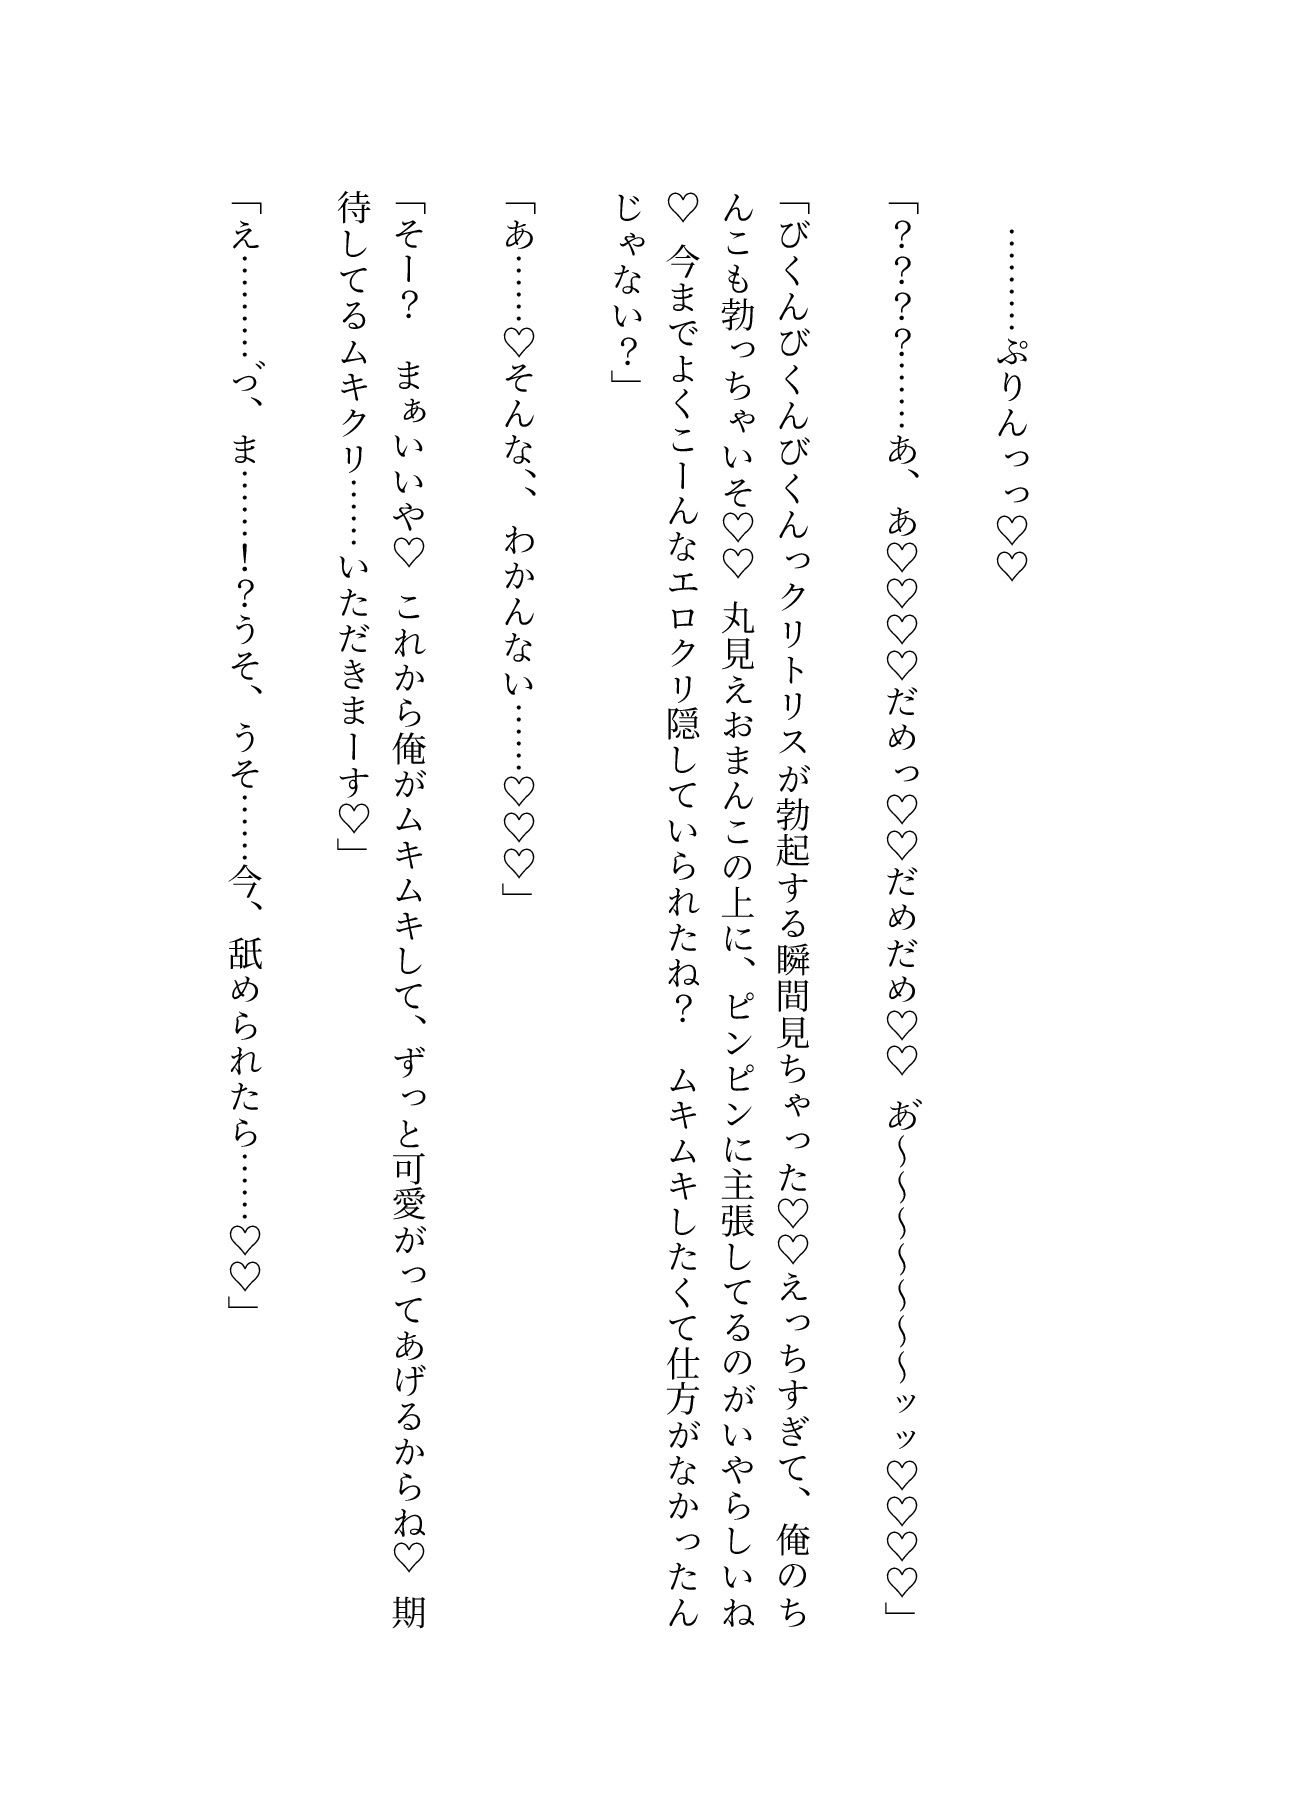 …………ぷりんっっ♡♡
「？？？？………あ、あ♡♡♡♡だめっ♡♡だめだめ♡♡ あ゛～～～～～～～ッッ♡♡♡♡」
「びくんびくんびくんっクリトリスが勃起する瞬間見ちゃった♡♡えっちすぎて、俺のち
んこも勃っちゃいそ♡♡ 丸見えおまんこの上に、ピンピンに主張してるのがいやらしいね
♡ 今までよくこーんなエロクリ隠していられたね？　ムキムキしたくて仕方がなかったん
じゃない？」
「あ……♡そんな、、わかんない……♡♡♡」
「そー？　まぁいいや♡ これから俺がムキムキして、ずっと可愛がってあげるからね♡ 期
待してるムキクリ……いただきまーす♡」
「え…………っ゛、ま………！？うそ、うそ……今、舐められたら……♡♡」